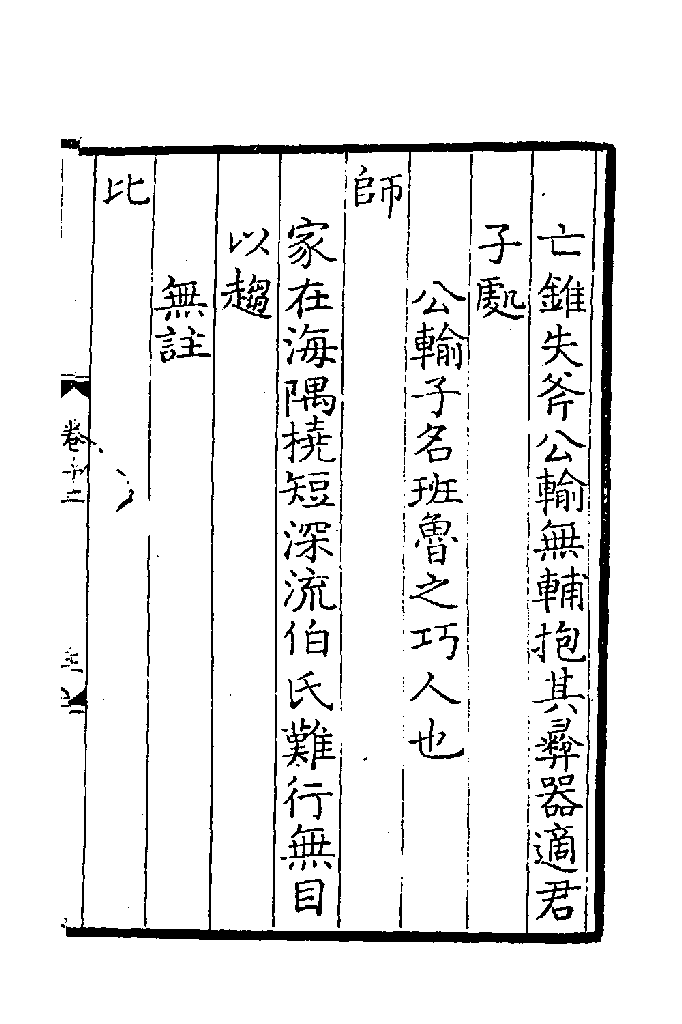 亡錐失斧公輸無輔抱其彝器適君
子處
公輸子名班魯之巧人也
師
家在海隅橈短深流伯氏難行無目
以趨
無註
比
卷十二